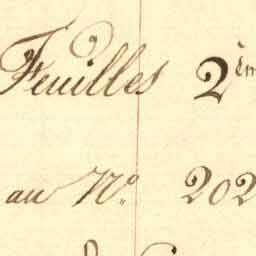 Feuilles 2èm
au No. 202